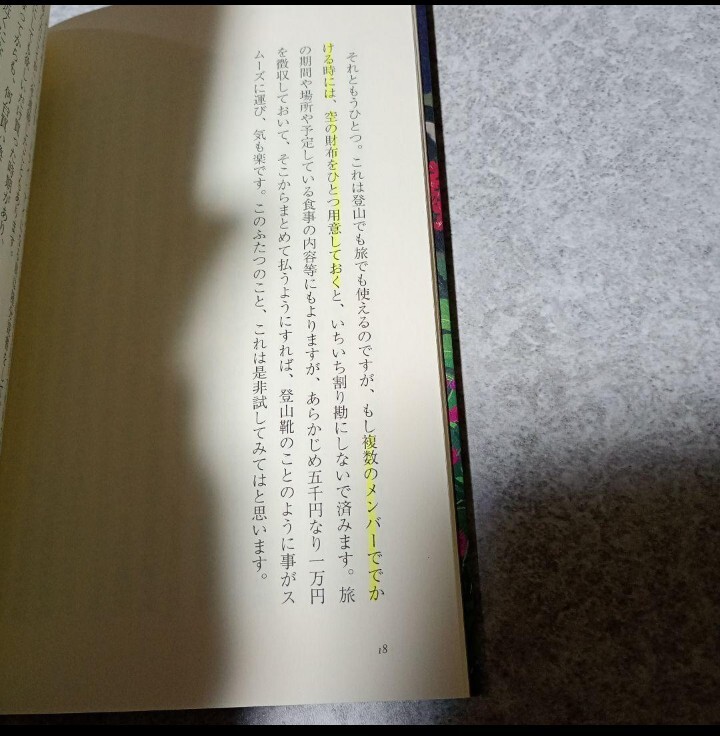 それともうひとつ。これは登山でも旅でも使えるのですが、もし複数のメンバーででか
ける時には、空の財布をひとつ用意しておくと、いちいち割り勘にしないで済みます。旅
の期間や場所や予定している食事の内容等にもよりますが、あらかじめ五千円なり一万円
を徴収しておいて、そこからまとめて払うようにすれば、登山靴のことのように事がス
ムーズに運び、気も楽です。このふたつのこと、これは是非試してみてはと思います。
18